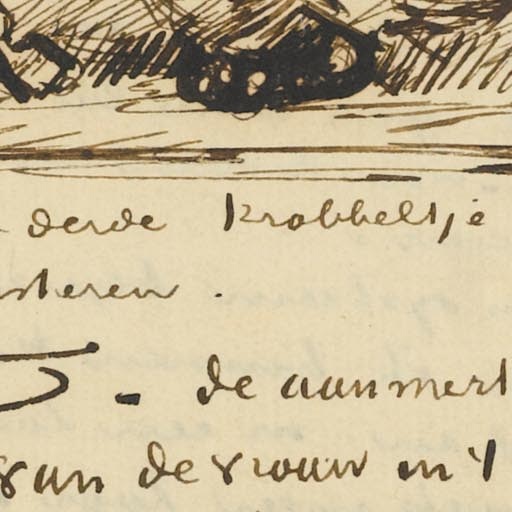 derde Krabbeltje
steren.
- de aanmerk
van de vrouw in 't